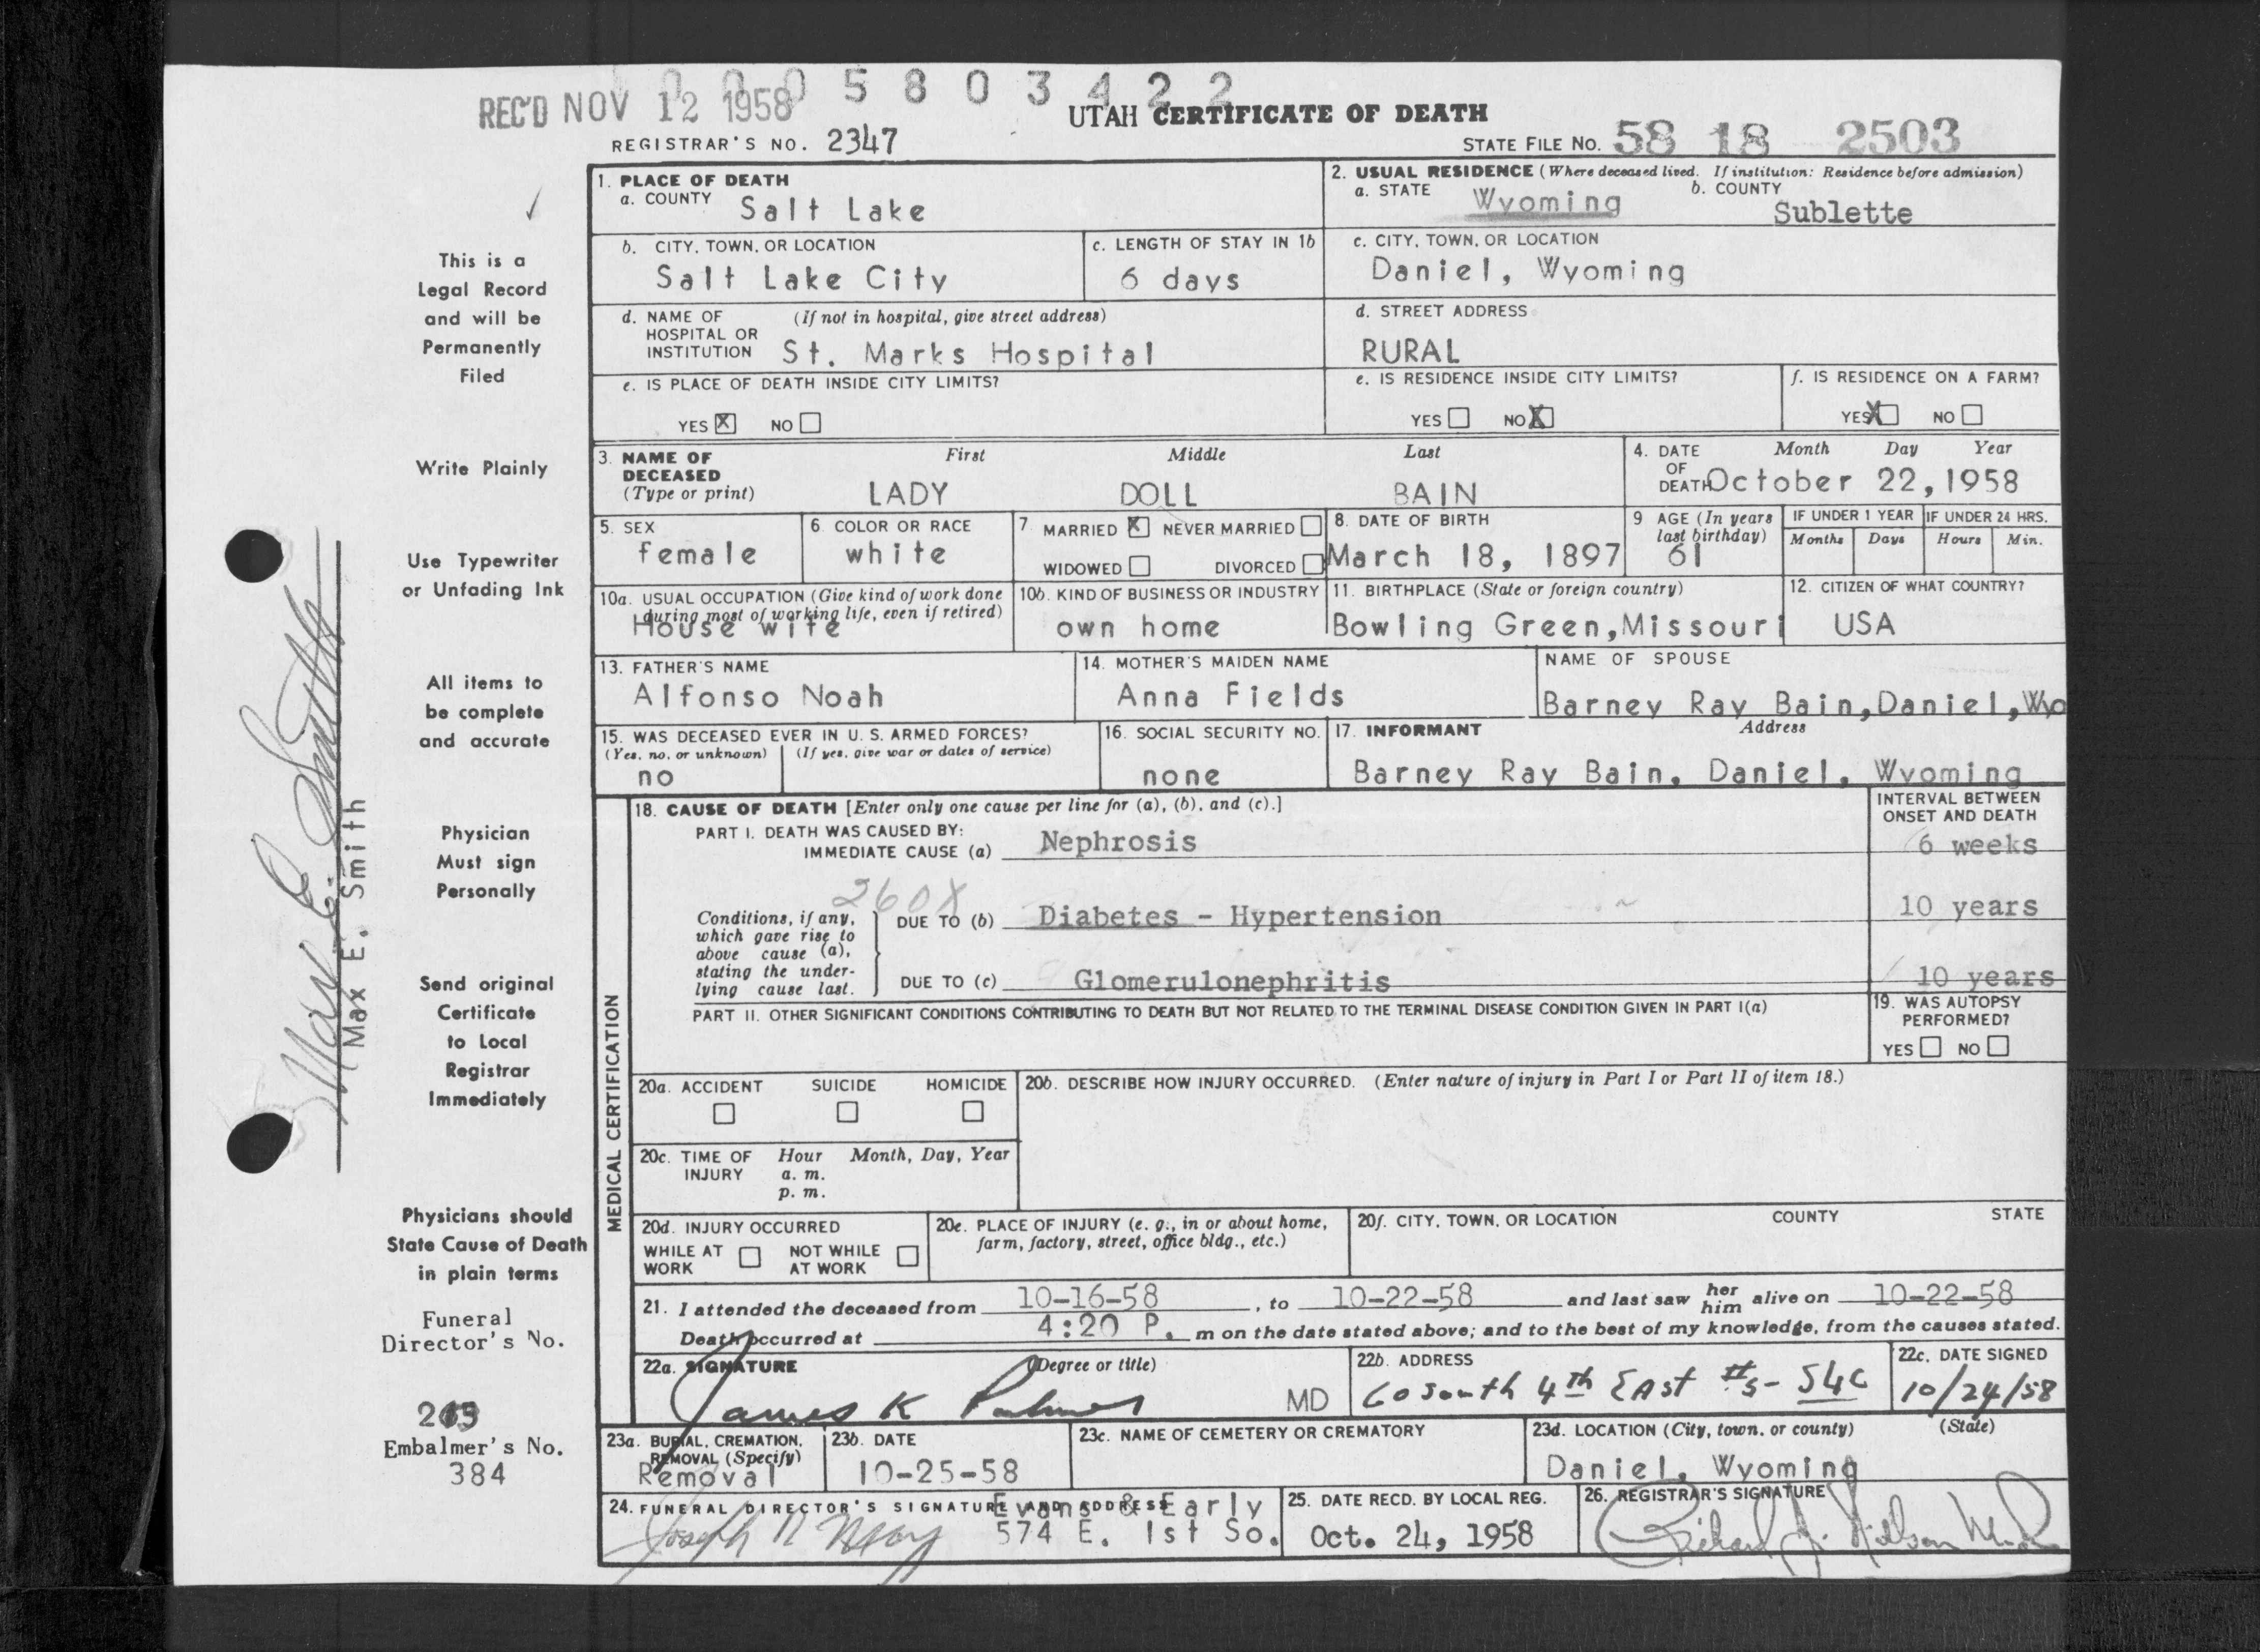 0 0 0 5 8 0 3 4 2 2
REC'D NOV 12 1958
UTAH CERTIFICATE OF DEATH
REGISTRAR'S NO. 2347
STATE FILE NO. 58 18 2503
1. PLACE OF DEATH
a. COUNTY Salt Lake
2. USUAL RESIDENCE (Where deceased lived. If institution: Residence before admission)
a. STATE Wyoming b. COUNTY Sublette
b. CITY, TOWN, OR LOCATION
Salt Lake City
c. LENGTH OF STAY IN 1b
6 days
c. CITY, TOWN, OR LOCATION
Daniel, Wyoming
d. NAME OF (If not in hospital, give street address)
HOSPITAL OR
INSTITUTION St. Marks Hospital
d. STREET ADDRESS
RURAL
e. IS PLACE OF DEATH INSIDE CITY LIMITS?
YES X NO
e. IS RESIDENCE INSIDE CITY LIMITS?
YES NO X
f. IS RESIDENCE ON A FARM?
YES X NO
3. NAME OF First Middle Last
DECEASED
(Type or print) LADY DOLL BAIN
4. DATE Month Day Year
OF
DEATH October 22, 1958
5. SEX
female
6. COLOR OR RACE
white
7. MARRIED X NEVER MARRIED
WIDOWED DIVORCED
8. DATE OF BIRTH
March 18, 1897
9 AGE (In years
last birthday)
61
IF UNDER 1 YEAR
Months Days
IF UNDER 24 HRS.
Hours Min.
10a. USUAL OCCUPATION (Give kind of work done
during most of working life, even if retired)
House wife
10b. KIND OF BUSINESS OR INDUSTRY
own home
11. BIRTHPLACE (State or foreign country)
Bowling Green, Missouri
12. CITIZEN OF WHAT COUNTRY?
USA
13. FATHER'S NAME
Alfonso Noah
14. MOTHER'S MAIDEN NAME
Anna Fields
NAME OF SPOUSE
Barney Ray Bain, Daniel, Wyo
15. WAS DECEASED EVER IN U. S. ARMED FORCES?
(Yes, no, or unknown) (If yes, give war or dates of service)
no
16. SOCIAL SECURITY NO.
none
17. INFORMANT Address
Barney Ray Bain, Daniel, Wyoming
MEDICAL CERTIFICATION
18. CAUSE OF DEATH [Enter only one cause per line for (a), (b), and (c).]
INTERVAL BETWEEN
ONSET AND DEATH
PART I. DEATH WAS CAUSED BY:
IMMEDIATE CAUSE (a) Nephrosis 6 weeks
260X
Conditions, if any,
which gave rise to
above cause (a),
stating the under-
lying cause last.
DUE TO (b) Diabetes - Hypertension 10 years
DUE TO (c) Glomerulonephritis 10 years
PART II. OTHER SIGNIFICANT CONDITIONS CONTRIBUTING TO DEATH BUT NOT RELATED TO THE TERMINAL DISEASE CONDITION GIVEN IN PART I(a)
19. WAS AUTOPSY
PERFORMED?
YES NO
20a. ACCIDENT SUICIDE HOMICIDE
20b. DESCRIBE HOW INJURY OCCURRED. (Enter nature of injury in Part I or Part II of item 18.)
20c. TIME OF Hour Month, Day, Year
INJURY a. m.
p. m.
20d. INJURY OCCURRED
WHILE AT
WORK
NOT WHILE
AT WORK
20e. PLACE OF INJURY (e. g., in or about home,
farm, factory, street, office bldg., etc.)
20f. CITY, TOWN, OR LOCATION COUNTY STATE
21. I attended the deceased from 10-16-58, to 10-22-58 and last saw her him alive on 10-22-58
Death occurred at 4:20 P. m on the date stated above; and to the best of my knowledge, from the causes stated.
22a. SIGNATURE (Degree or title)
James K Palmer MD
22b. ADDRESS
60 South 4th East #5 - SLC
22c. DATE SIGNED
10/24/58
23a. BURIAL, CREMATION,
REMOVAL (Specify)
Removal
23b. DATE
10-25-58
23c. NAME OF CEMETERY OR CREMATORY
23d. LOCATION (City, town, or county) (State)
Daniel, Wyoming
24. FUNERAL DIRECTOR'S SIGNATURE AND ADDRESS Evans & Early
Joseph 574 E. 1st So.
25. DATE RECD. BY LOCAL REG.
Oct. 24, 1958
26. REGISTRAR'S SIGNATURE
Richard J. Nelson M.D.
This is a
Legal Record
and will be
Permanently
Filed
Write Plainly
Use Typewriter
or Unfading Ink
All items to
be complete
and accurate
Physician
Must sign
Personally
Send original
Certificate
to Local
Registrar
Immediately
Physicians should
State Cause of Death
in plain terms
Funeral
Director's No.
Embalmer's No.
384
Max E. Smith
Max E. Smith